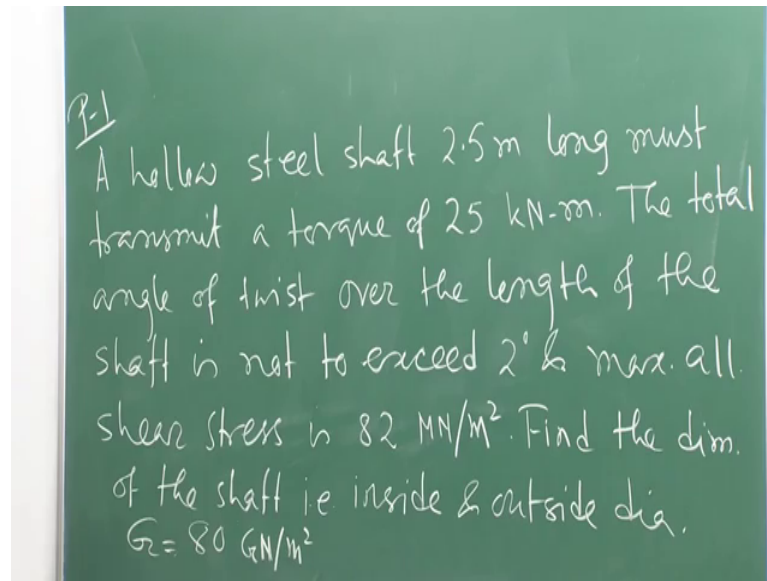 P-1
A hollow steel shaft 2.5 m long must
transmit a torque of 25 kN-m. The total
angle of twist over the length of the
shaft is not to exceed 2° & max. all.
shear stress is 82 MN/m². Find the dim.
of the shaft i.e inside & outside dia.
G = 80 GN/m²